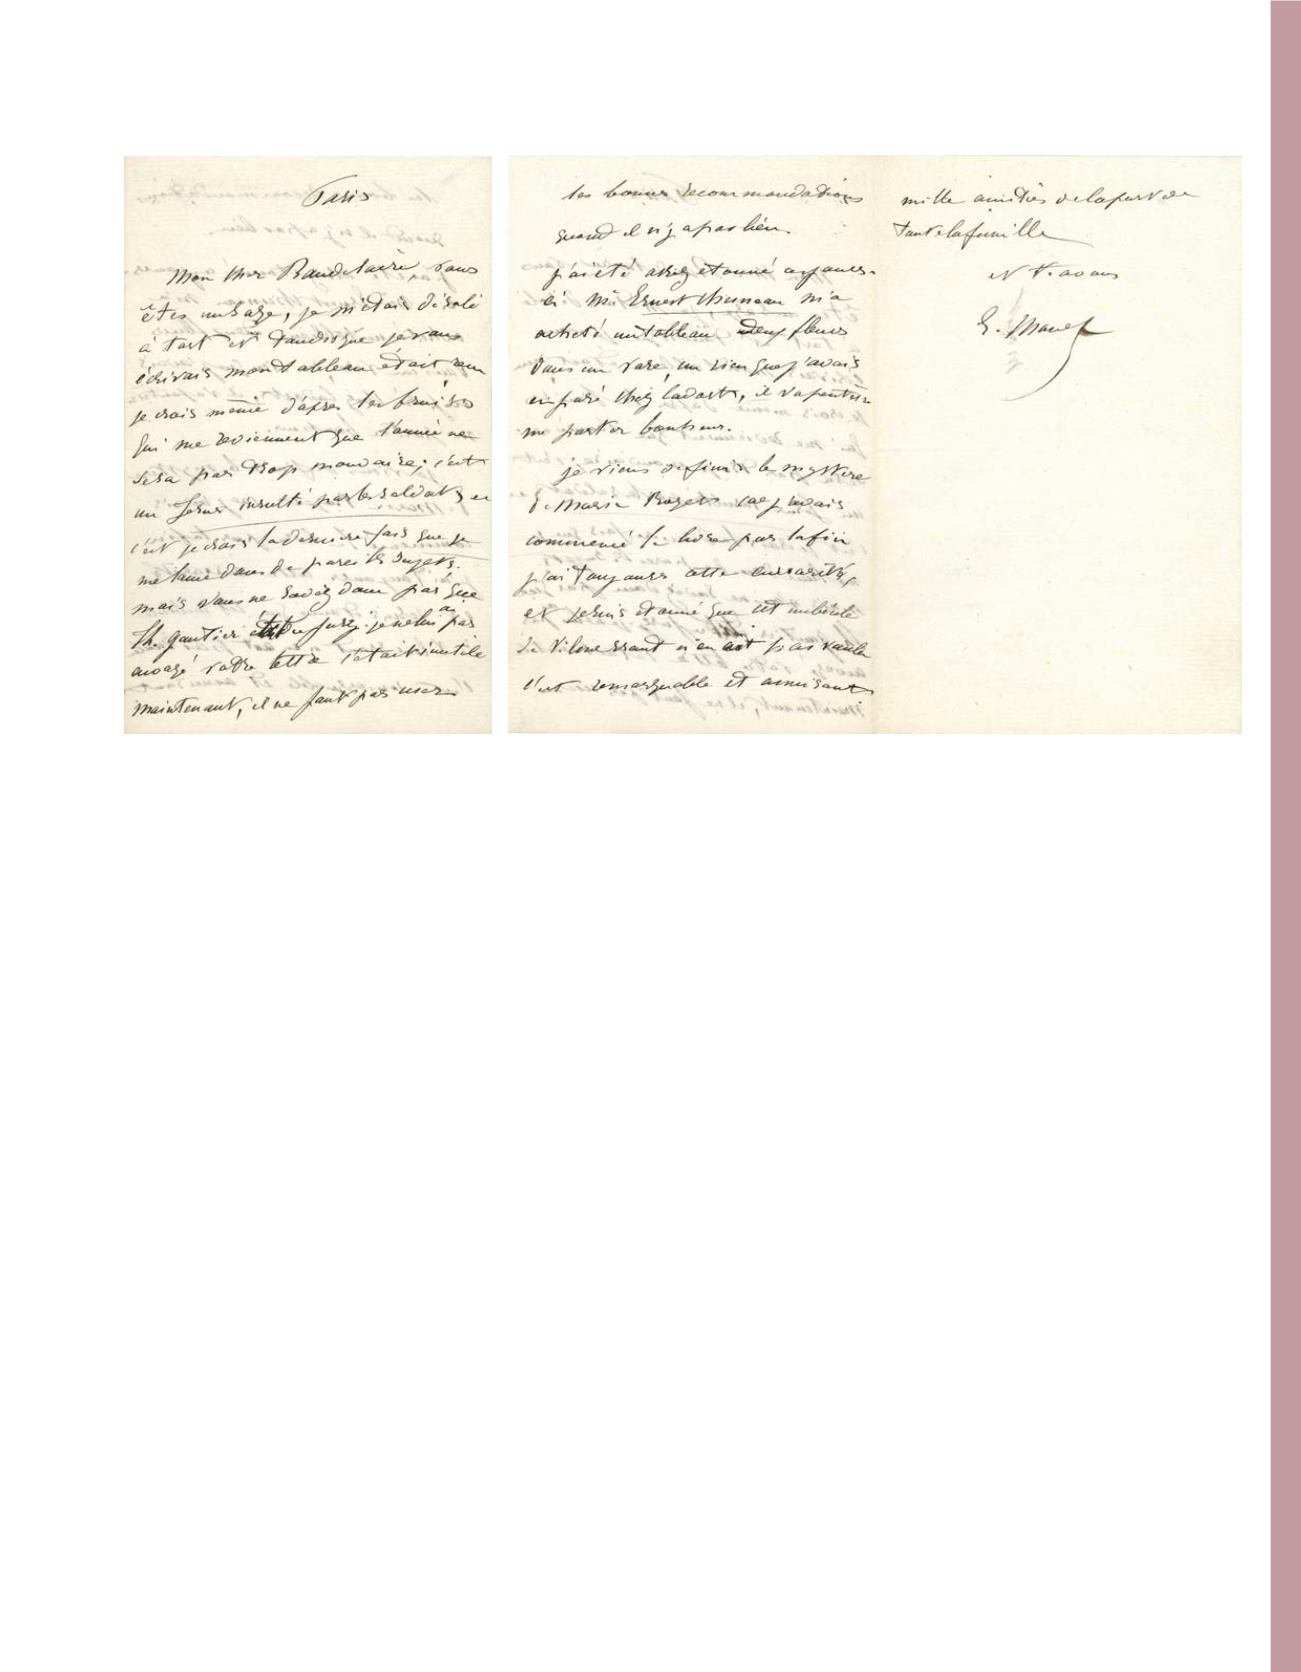 Paris
Mon cher Baudelaire, vous
êtes un sage, je m'étais désolé
à tort et tandis que je vous
écrivais mon tableau était reçu
je crois même d'après les bruits
qui me reviennent que l'année ne
sera pas trop mauvaise; c'est
un Jesus insulté par les soldats et
c'est je crois la derniere fois que je
me lance dans de pareils sujets.
mais vous ne savez donc pas que
Th. gautier du jury. je ne lui ai pas
envoyé votre lettre c'était inutile
maintenant, il ne faut pas user
les bonnes recommandations
quand il n'y a pas lieu.
j'ai été assez étonné ces jours-
ci Mr Ernest Chesneau m'a
acheté un tableau deux fleurs
dans un vase, un rien que j'avais
exposé chez Cadart, il va peut être
me porter bonheur.
je viens de finir le mystere
de Marie Roget car j'avais
commencé la chose par la fin
j'ai toujours cette curiosité,
et je suis étonné que cet imbécile
de Villemessant n'en ait pas voulu
c'est remarquable et amusant
mille amitiés de la part de
toute la famille
et T. a vous
E. Manet